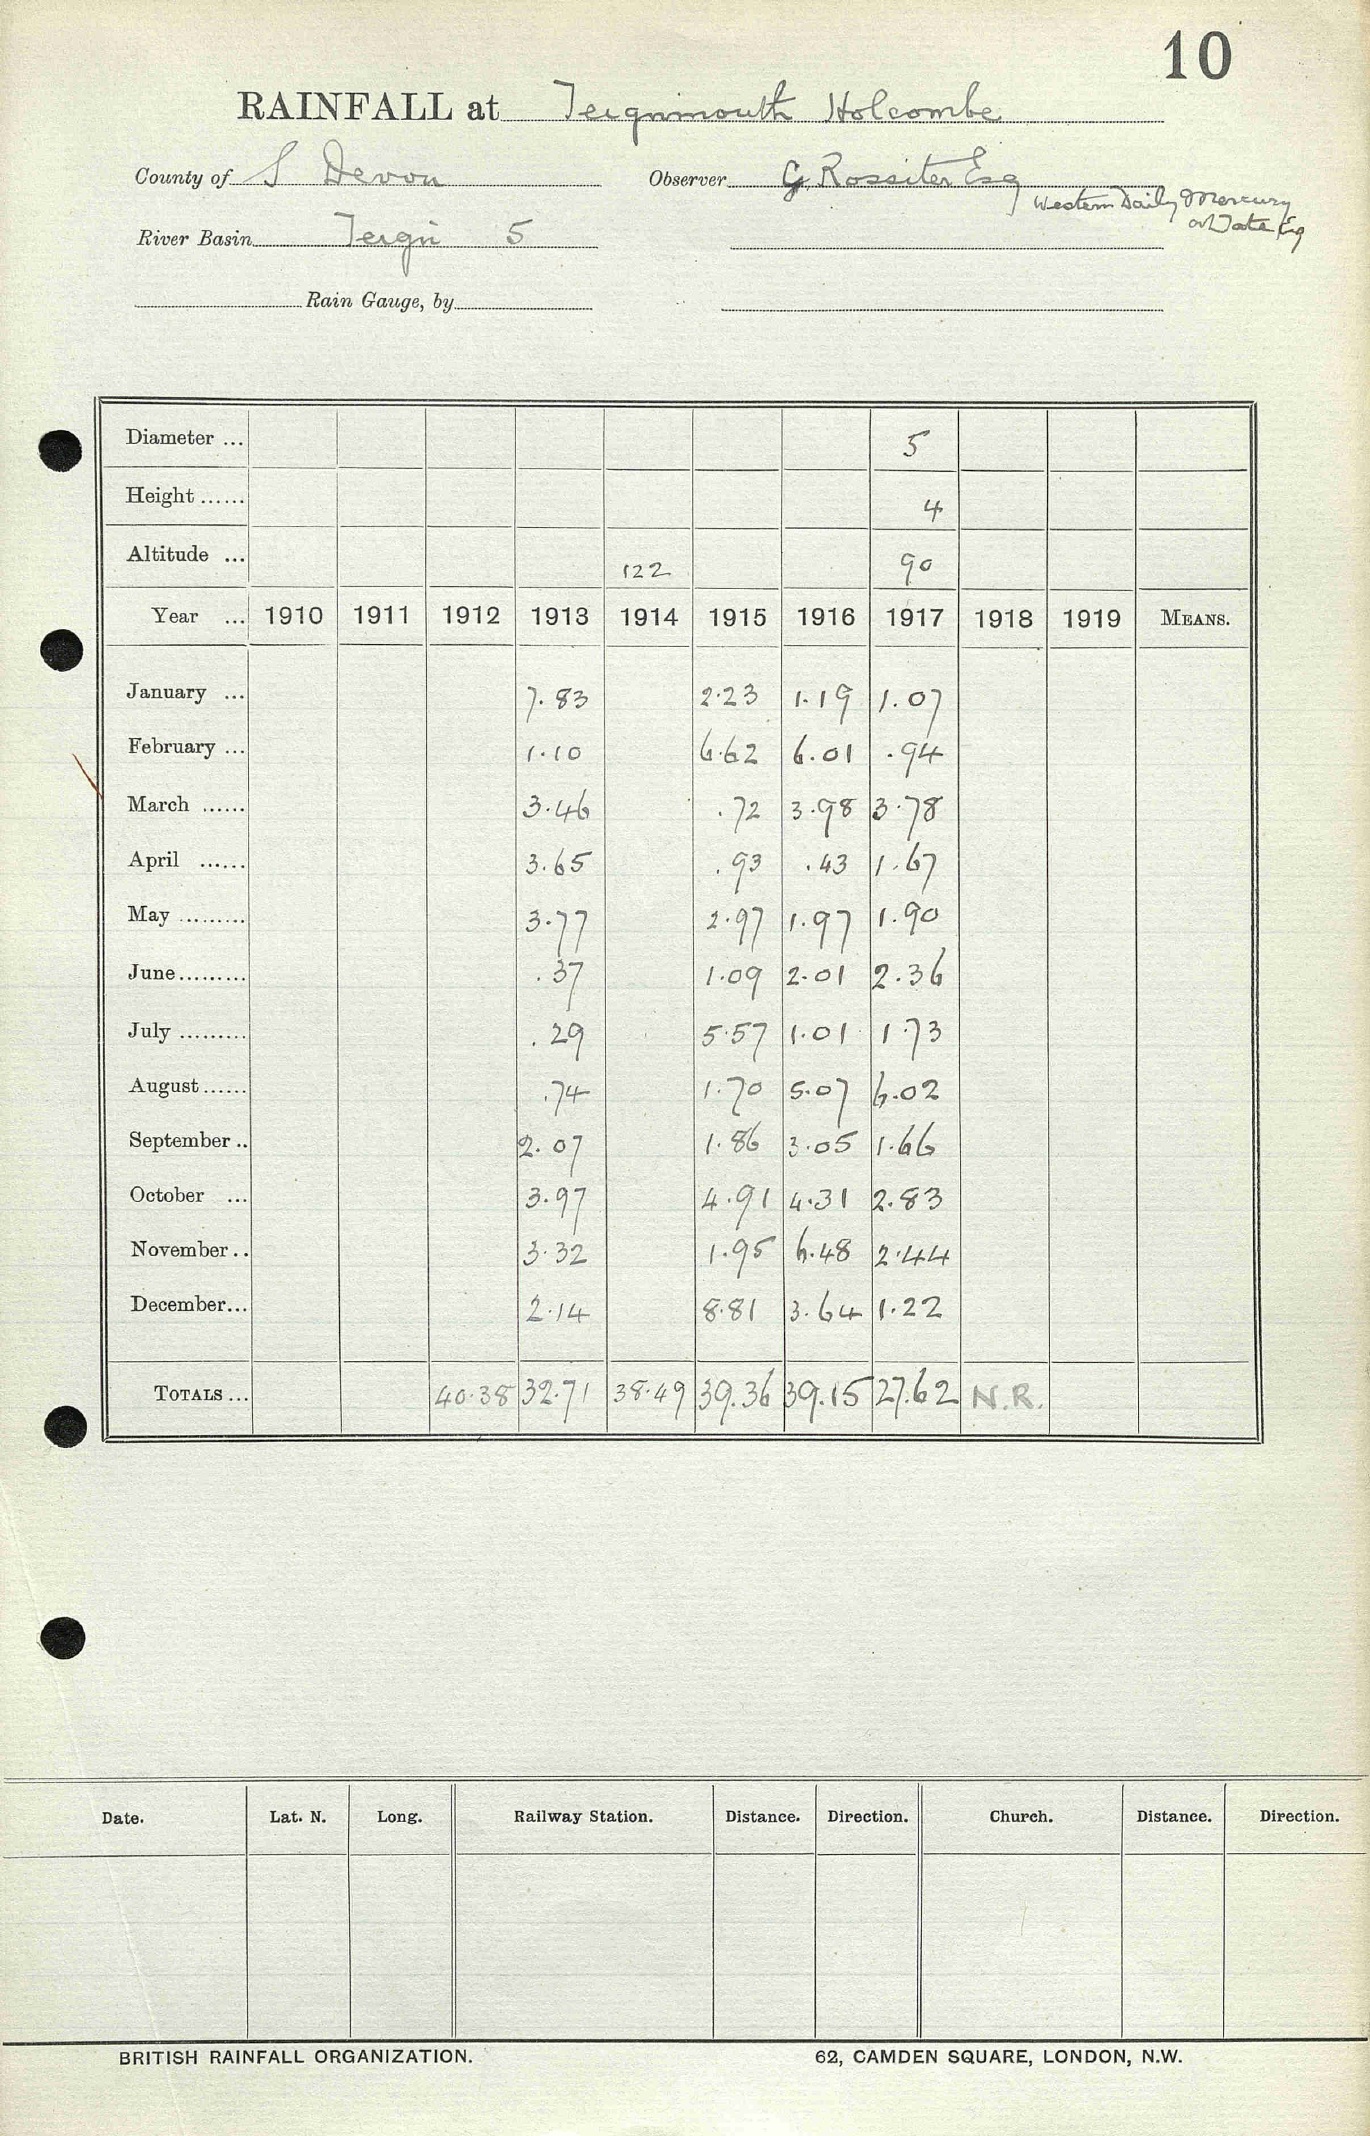 10
RAINFALL at Teignmouth Holcombe
County of S Devon Observer G. Rossiter Esq
Western Daily Mercury
River Basin Teign 5
Rain Gauge, by
Diameter ... 5
Height ...... 4
Altitude ... 122 90
Year ... 1910 1911 1912 1913 1914 1915 1916 1917 1918 1919 MEANS.
January ... 7.83 2.23 1.19 1.07
February ... 1.10 6.62 6.01 .94
March ...... 3.46 .72 3.98 3.78
April ...... 3.65 .93 .43 1.67
May ......... 3.77 2.97 1.97 1.90
June ......... .37 1.09 2.01 2.36
July ......... .29 5.57 1.01 1.73
August ...... .74 1.70 5.07 6.02
September .. 2.07 1.86 3.05 1.66
October ... 3.97 4.91 4.31 2.83
November .. 3.32 1.95 6.48 2.44
December ... 2.14 8.81 3.64 1.22
TOTALS ... 40.38 32.71 38.49 39.36 39.15 27.62 N.R.
Date. Lat. N. Long. Railway Station. Distance. Direction. Church. Distance. Direction.
BRITISH RAINFALL ORGANIZATION. 62, CAMDEN SQUARE, LONDON, N.W.